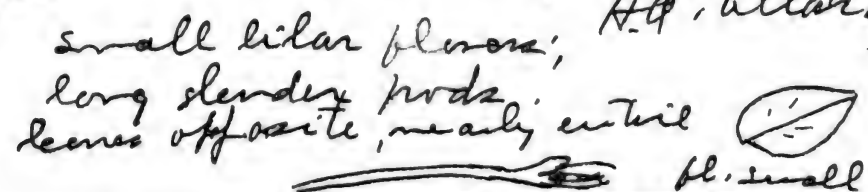 small lilac flowers;
long slender pods.
leaves opposite, nearly entire
fl. small